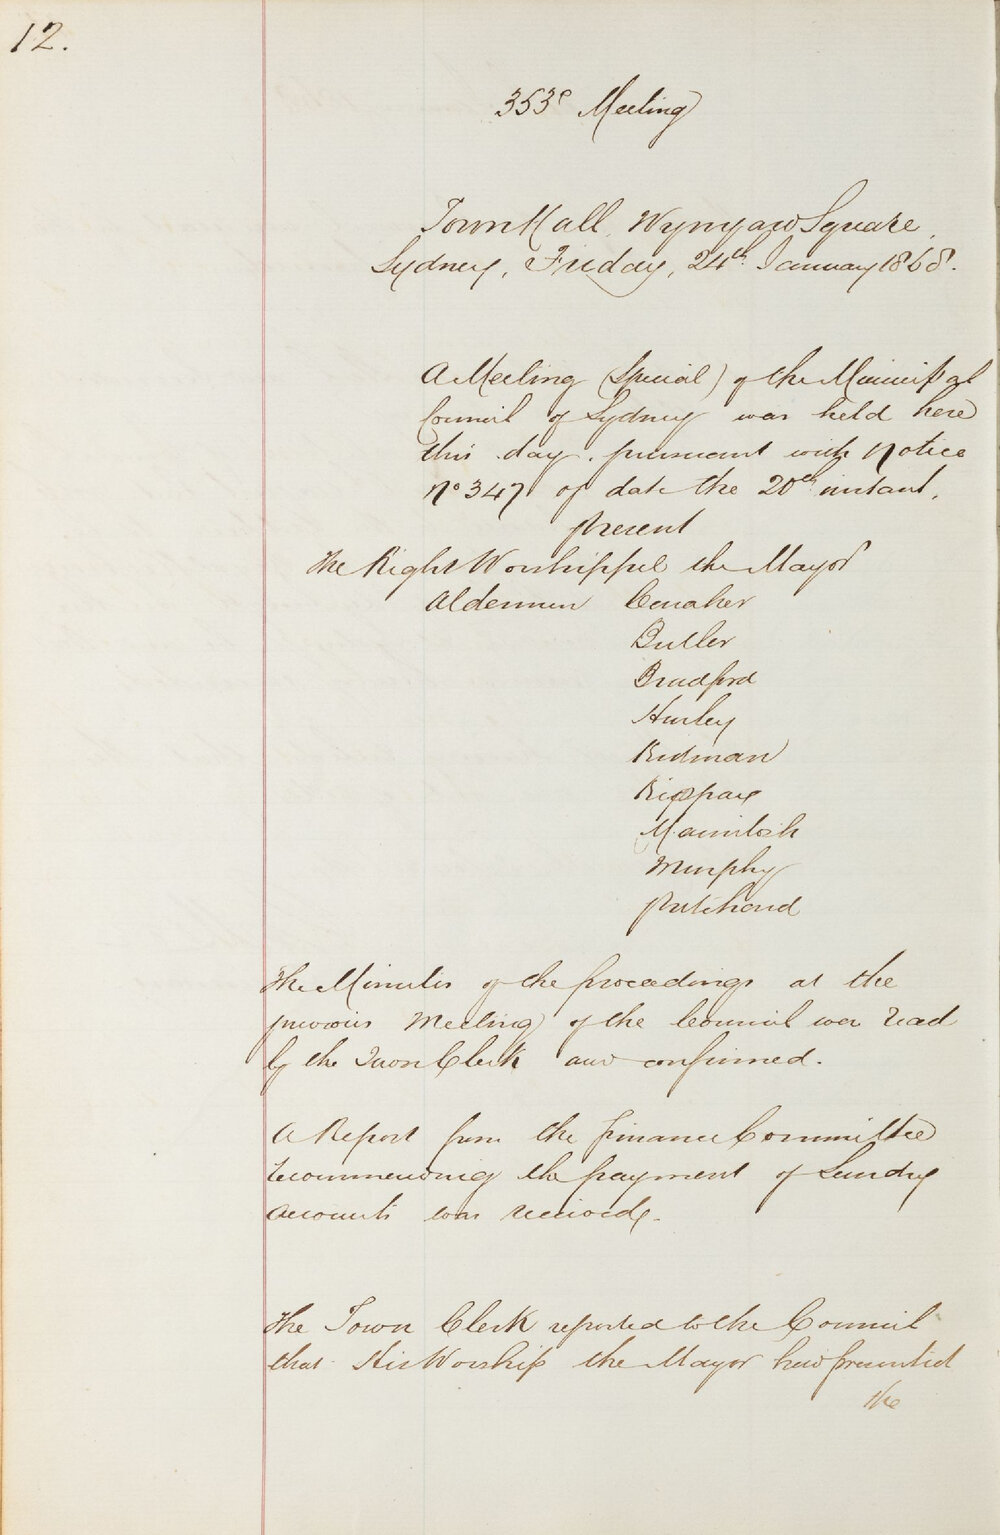 12.
353d Meeting
Town Hall, Wynyard Square,
Sydney, Friday, 24th January 1868.
A Meeting (Special) of the Municipal
Council of Sydney was held here
this day, pursuant with Notice
No 347 of date the 20th instant,
Present
The Right Worshipful the Mayor
Aldermen Conaher
Butler
Bradford
Hurley
Kidman
Kippax
Macintosh
Murphy
Pritchard
The Minutes of the proceedings at the
previous Meeting of the Council were read
by the Town Clerk and confirmed.
A Report from the Finance Committee
recommending the payment of Sundry
accounts was received.
The Town Clerk reported to the Council
that His Worship the Mayor had presented
the